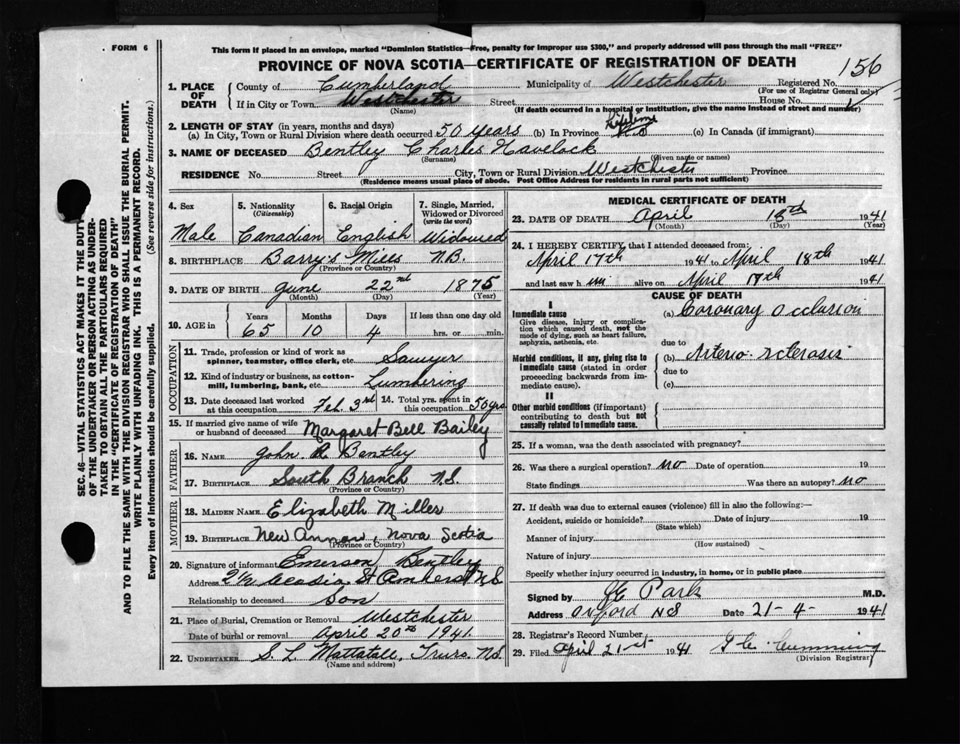 FORM 6
This form if placed in an envelope, marked "Dominion Statistics—Free, penalty for improper use $300," and properly addressed will pass through the mail "FREE"
PROVINCE OF NOVA SCOTIA—CERTIFICATE OF REGISTRATION OF DEATH
156
1. PLACE OF DEATH
County of Cumberland Municipality of Westchester Registered No.
(For use of Registrar General only)
If in City or Town Westchester Street House No.
(Name) (If death occurred in a hospital or institution, give the name instead of street and number)
2. LENGTH OF STAY (in years, months and days)
(a) In City, Town or Rural Division where death occurred 50 years (b) In Province Lifetime (c) In Canada (if immigrant)
3. NAME OF DECEASED Bentley Charles Havelock
(Surname) (Given name or names)
RESIDENCE No. Street City, Town or Rural Division Westchester Province
(Residence means usual place of abode. Post Office Address for residents in rural parts not sufficient)
SEC. 46—VITAL STATISTICS ACT MAKES IT THE DUTY
OF THE UNDERTAKER OR PERSON ACTING AS UNDER-
TAKER TO OBTAIN ALL THE PARTICULARS REQUIRED
IN THE "CERTIFICATE OF REGISTRATION OF DEATH"
AND TO FILE THE SAME WITH THE DIVISION REGISTRAR WHO SHALL ISSUE THE BURIAL PERMIT.
WRITE PLAINLY WITH UNFADING INK. THIS IS A PERMANENT RECORD.
Every item of information should be carefully supplied. (See reverse side for instructions.)
4. Sex
Male
5. Nationality
(Citizenship)
Canadian
6. Racial Origin
English
7. Single, Married, Widowed or Divorced
(write the word)
Widowed
8. BIRTHPLACE Barry's Mills N.B.
(Province or Country)
9. DATE OF BIRTH June 22nd 1875
(Month) (Day) (Year)
10. AGE in Years Months Days If less than one day
65 10 4 hrs. or min.
OCCUPATION
11. Trade, profession or kind of work as
spinner, teamster, office clerk, etc. Sawyer
12. Kind of industry or business, as cotton-
mill, lumbering, bank, etc. Lumbering
13. Date deceased last worked
at this occupation Feb. 3rd
14. Total yrs. spent in
this occupation 50 yrs
15. If married give name of wife
or husband of deceased Margaret Bell Bailey
FATHER
16. NAME John A. Bentley
17. BIRTHPLACE South Branch N.S.
(Province or Country)
MOTHER
18. MAIDEN NAME Elizabeth Miller
19. BIRTHPLACE New Annan, Nova Scotia
(Province or Country)
20. Signature of informant Emerson Bentley
Address Acadia St Amherst N.S.
Relationship to deceased Son
21. Place of Burial, Cremation or Removal Westchester
Date of burial or removal April 20th 1941.
22. UNDERTAKER S. L. Mattatall, Truro N.S.
(Name and address)
MEDICAL CERTIFICATE OF DEATH
23. DATE OF DEATH April 18th 1941
(Month) (Day) (Year)
24. I HEREBY CERTIFY, that I attended deceased from:
April 17th 1941 to April 18th 1941
and last saw him alive on April 17th 1941
CAUSE OF DEATH
I
Immediate cause
Give disease, injury or complica-
tion which caused death, not the
mode of dying, such as heart failure,
asphyxia, asthenia, etc.
(a) Coronary Occlusion
due to
Morbid conditions, if any, giving rise to
immediate cause (stated in order
proceeding backwards from im-
mediate cause).
(b) Arterio-sclerosis
due to
(c)
II
Other morbid conditions (if important)
contributing to death but not
causally related to immediate cause.
25. If a woman, was the death associated with pregnancy?
26. Was there a surgical operation? no Date of operation 19
State findings Was there an autopsy? no
27. If death was due to external causes (violence) fill in also the following:—
Accident, suicide or homicide? Date of injury 19
(State which)
Manner of injury
(How sustained)
Nature of injury
Specify whether injury occurred in industry, in home, or in public place
Signed by J E Park M.D.
Address Oxford NS Date 21-4- 1941
28. Registrar's Record Number
29. Filed April 21st 1941 Cumming
(Division Registrar)